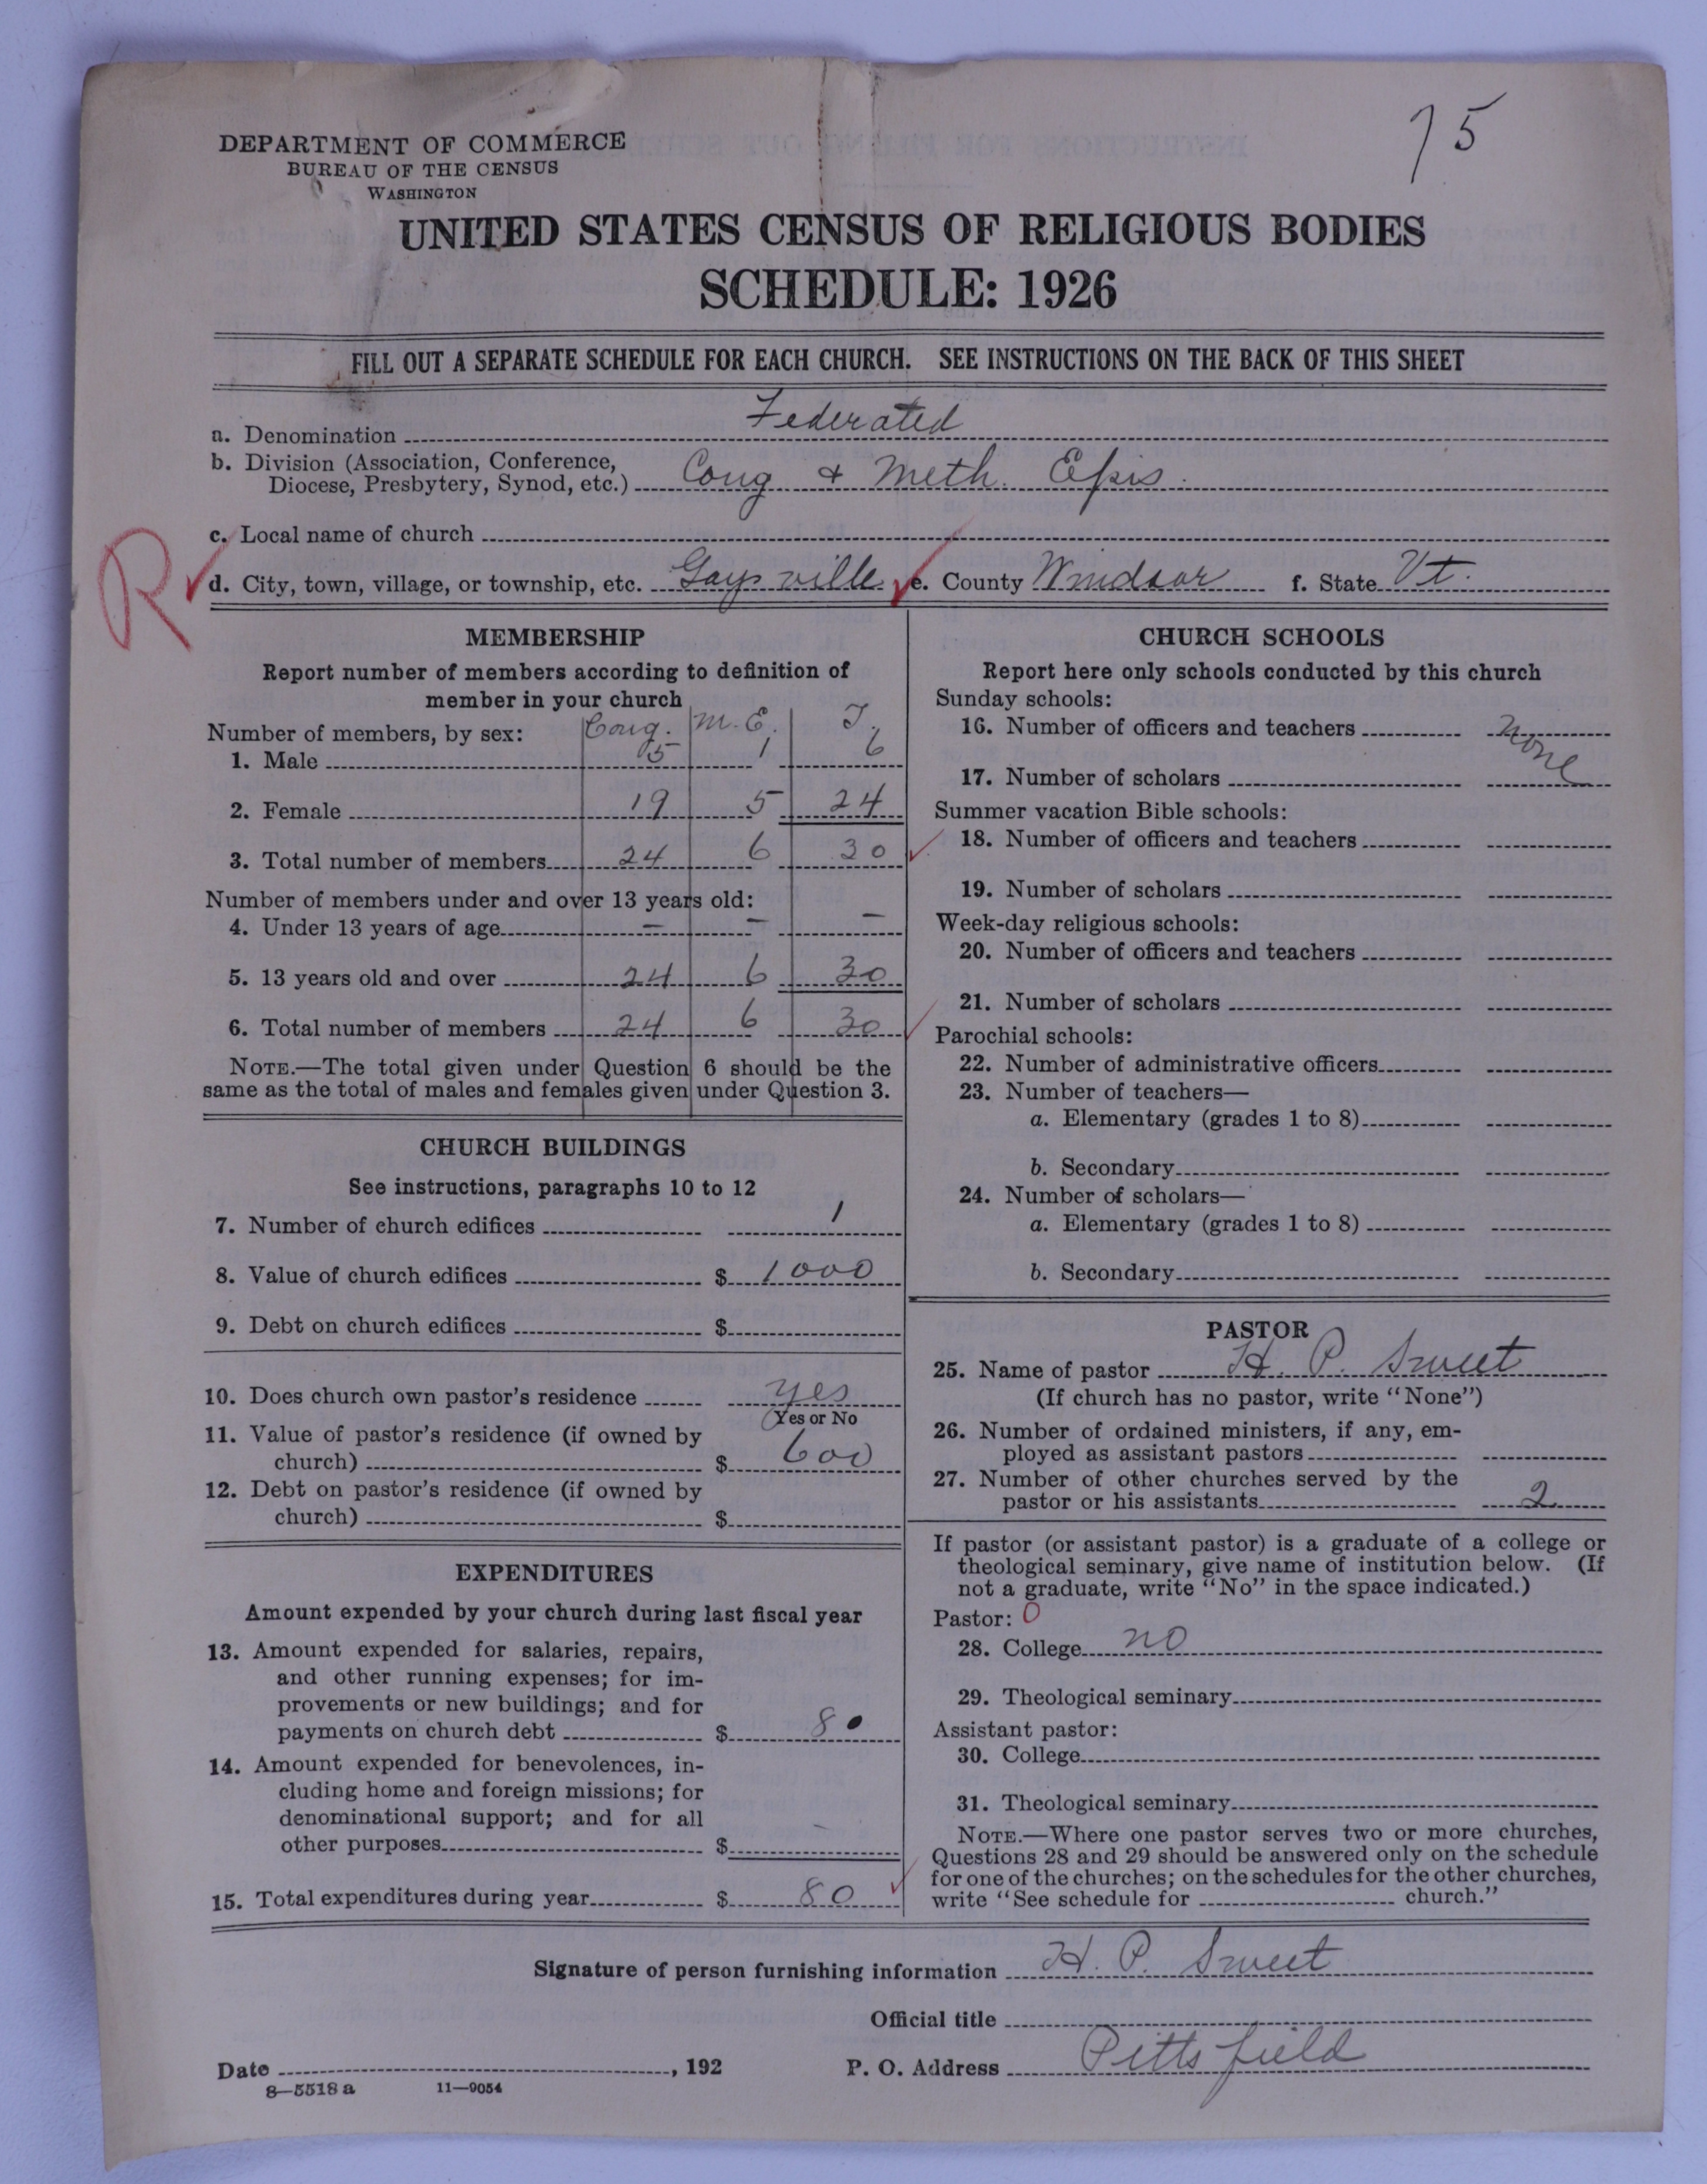 75
DEPARTMENT OF COMMERCE
BUREAU OF THE CENSUS
WASHINGTON
UNITED STATES CENSUS OF RELIGIOUS BODIES
SCHEDULE: 1926
FILL OUT A SEPARATE SCHEDULE FOR EACH CHURCH. SEE INSTRUCTIONS ON THE BACK OF THIS SHEET
a. Denomination Federated
b. Division (Association, Conference,
Diocese, Presbytery, Synod, etc.) Cong & Meth. Epis.
c. Local name of church
R
d. City, town, village, or township, etc. Gaysville e. County Windsor f. State Vt.
MEMBERSHIP
Report number of members according to definition of
member in your church
Number of members, by sex: Cong. M.E. T.
1. Male 5 1 6
2. Female 19 5 24
3. Total number of members 24 6 30
Number of members under and over 13 years old:
4. Under 13 years of age — — —
5. 13 years old and over 24 6 30
6. Total number of members 24 6 30
NOTE.—The total given under Question 6 should be the
same as the total of males and females given under Question 3.
CHURCH BUILDINGS
See instructions, paragraphs 10 to 12
7. Number of church edifices 1
8. Value of church edifices $ 1000
9. Debt on church edifices $
10. Does church own pastor's residence yes
Yes or No
11. Value of pastor's residence (if owned by
church) $ 600
12. Debt on pastor's residence (if owned by
church) $
EXPENDITURES
Amount expended by your church during last fiscal year
13. Amount expended for salaries, repairs,
and other running expenses; for im-
provements or new buildings; and for
payments on church debt $ 80
14. Amount expended for benevolences, in-
cluding home and foreign missions; for
denominational support; and for all
other purposes $ —
15. Total expenditures during year $ 80
CHURCH SCHOOLS
Report here only schools conducted by this church
Sunday schools:
16. Number of officers and teachers none
17. Number of scholars
Summer vacation Bible schools:
18. Number of officers and teachers
19. Number of scholars
Week-day religious schools:
20. Number of officers and teachers
21. Number of scholars
Parochial schools:
22. Number of administrative officers
23. Number of teachers—
a. Elementary (grades 1 to 8)
b. Secondary
24. Number of scholars—
a. Elementary (grades 1 to 8)
b. Secondary
PASTOR
25. Name of pastor H. P. Sweet
(If church has no pastor, write "None")
26. Number of ordained ministers, if any, em-
ployed as assistant pastors
27. Number of other churches served by the
pastor or his assistants 2
If pastor (or assistant pastor) is a graduate of a college or
theological seminary, give name of institution below. (If
not a graduate, write "No" in the space indicated.)
Pastor: 0
28. College no
29. Theological seminary
Assistant pastor:
30. College
31. Theological seminary
NOTE.—Where one pastor serves two or more churches,
Questions 28 and 29 should be answered only on the schedule
for one of the churches; on the schedules for the other churches,
write "See schedule for church."
Signature of person furnishing information H. P. Sweet
Official title
Date , 192 P. O. Address Pittsfield
8—5518 a 11—9054